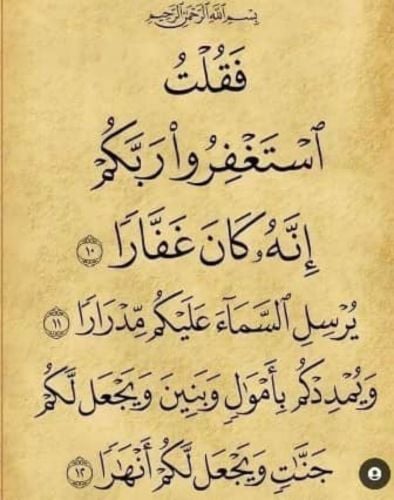 بِسْمِ اللَّهِ الرَّحْمَٰنِ الرَّحِيمِ
فَقُلْتُ
ٱسْتَغْفِرُوا۟ رَبَّكُمْ
إِنَّهُۥ كَانَ غَفَّارًا ١٠
يُرْسِلِ ٱلسَّمَآءَ عَلَيْكُم مِّدْرَارًا ١١
وَيُمْدِدْكُم بِأَمْوَٰلٍ وَبَنِينَ وَيَجْعَل لَّكُمْ
جَنَّٰتٍ وَيَجْعَل لَّكُمْ أَنْهَٰرًا ١٢